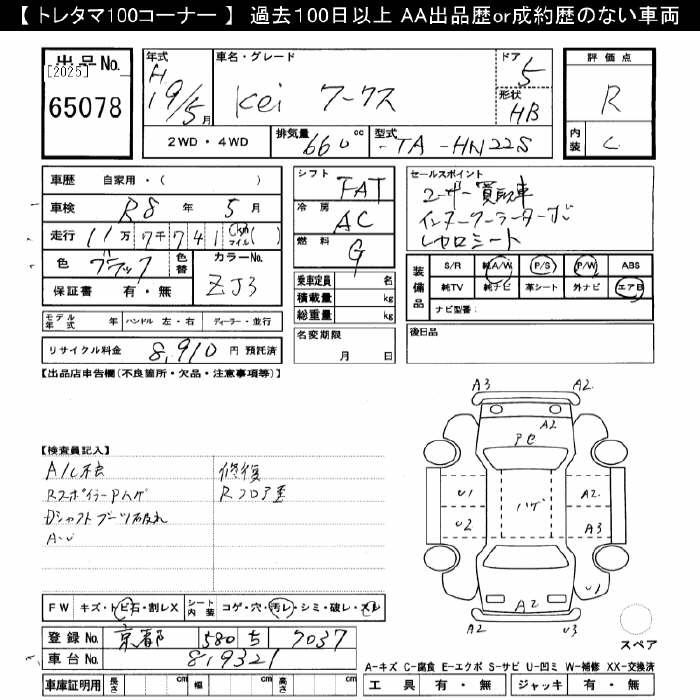 【 トレタマ100コーナー 】 過去100日以上 AA出品歴or成約歴のない車両
出品No.
[2025]
65078
年式
H
19/5月
車名・グレード
Kei ワークス
ドア
5
形状
HB
評価点
R
内装
C
2WD・4WD
排気量 660 cc
型式 -TA-HN22S
車歴 自家用・( )
車検 R8年 5月
走行 11万7千741 (Km マイル)( )
色 ブラック
色替
カラーNo. ZJ3
保証書 有・無
シフト FAT
冷房 AC
燃料 G
セールスポイント
ユーザー買取車
インタークーラーターボ
レカロシート
乗車定員 名
積載量 kg
総重量 kg
名変期限 月 日
装備品
S/R 純A/W P/S P/W ABS
純TV 純ナビ 革シート 外ナビ エアB
ナビ型番:
後日品
モデル年式 年 ハンドル 左・右 ディーラー・並行
リサイクル料金 8,910 円 預託済
【出品店申告欄(不良箇所・欠品・注意事項等)】
【検査員記入】
RスポイラーPハゲ
Dシャフトブーツ破れ
A・U
修復
Rフロア歪
A3 A2
A2
PC
U1 ハゲ A2
U2 A3
U1
A2
A2 U3
スペア
FW キズ・トビ石・割レX
シート内装 コゲ・穴・汚レ・シミ・破レ・スレ
登録No. 京都 580 ち 7037
車台No. 819321
車庫証明用 長さ cm 幅 cm 高さ cm
A-キズ C-腐食 E-エクボ S-サビ U-凹ミ W-補修 XX-交換済
工具 有・無 ジャッキ 有・無